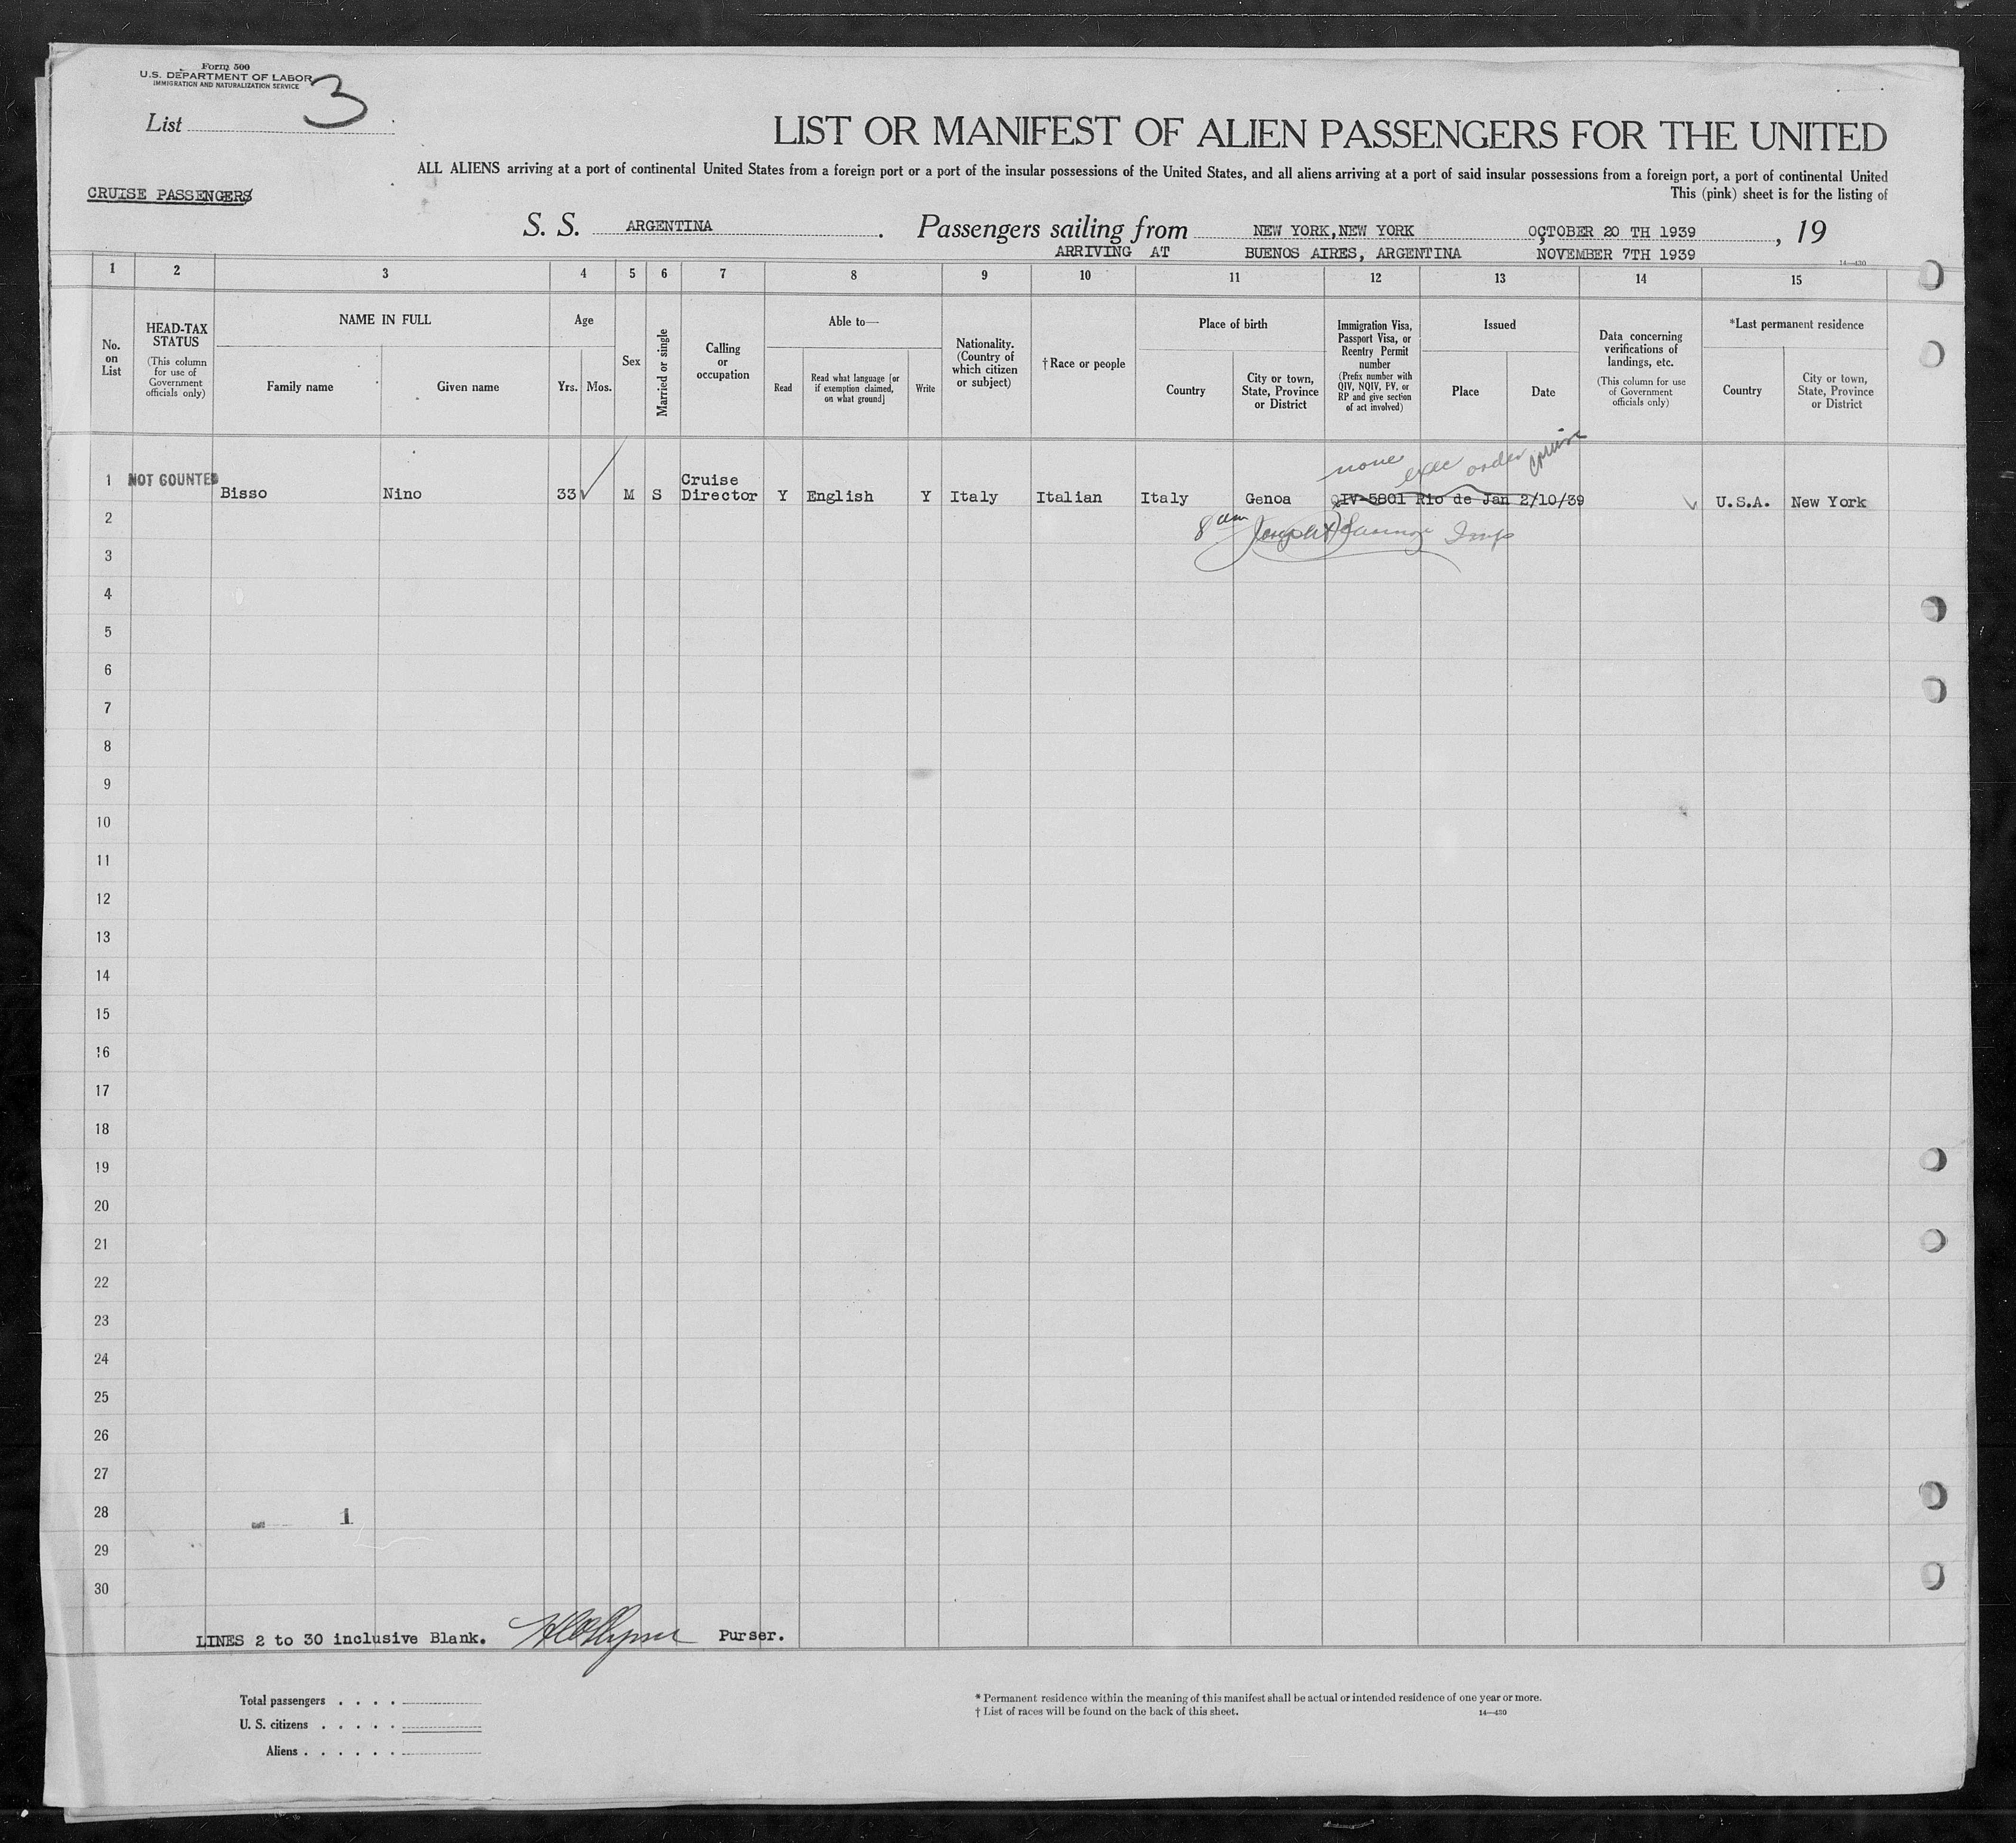 Form 500
U.S. DEPARTMENT OF LABOR
IMMIGRATION AND NATURALIZATION SERVICE
List 3
LIST OR MANIFEST OF ALIEN PASSENGERS FOR THE UNITED
ALL ALIENS arriving at a port of continental United States from a foreign port or a port of the insular possessions of the United States, and all aliens arriving at a port of said insular possessions from a foreign port, a port of continental United
This (pink) sheet is for the listing of
CRUISE PASSENGERS
S. S. ARGENTINA . Passengers sailing from NEW YORK,NEW YORK OCTOBER 20 TH 1939 , 19
ARRIVING AT BUENOS AIRES, ARGENTINA NOVEMBER 7TH 1939
14—430
1 2 3 4 5 6 7 8 9 10 11 12 13 14 15
No. on List
HEAD-TAX STATUS
(This column for use of Government officials only)
NAME IN FULL
Family name
Given name
Age
Yrs.
Mos.
Sex
Married or single
Calling or occupation
Able to—
Read
Read what language [or if exemption claimed, on what ground]
Write
Nationality. (Country of which citizen or subject)
†Race or people
Place of birth
Country
City or town, State, Province or District
Immigration Visa, Passport Visa, or Reentry Permit number
(Prefix number with QIV, NQIV, PV, or RP and give section of act involved)
Issued
Place
Date
Data concerning verifications of landings, etc.
(This column for use of Government officials only)
*Last permanent residence
Country
City or town, State, Province or District
none exec order cruise
1 NOT COUNTED Bisso Nino 33 M S Cruise Director Y English Y Italy Italian Italy Genoa QIV-5801 Rio de Jan 2/10/39 U.S.A. New York
2
8 am Insp
3
4
5
6
7
8
9
10
11
12
13
14
15
16
17
18
19
20
21
22
23
24
25
26
27
28 1
29
30
LINES 2 to 30 inclusive Blank. Purser.
Total passengers . . . .
U. S. citizens . . . . .
Aliens . . . . . .
* Permanent residence within the meaning of this manifest shall be actual or intended residence of one year or more.
† List of races will be found on the back of this sheet. 14—430